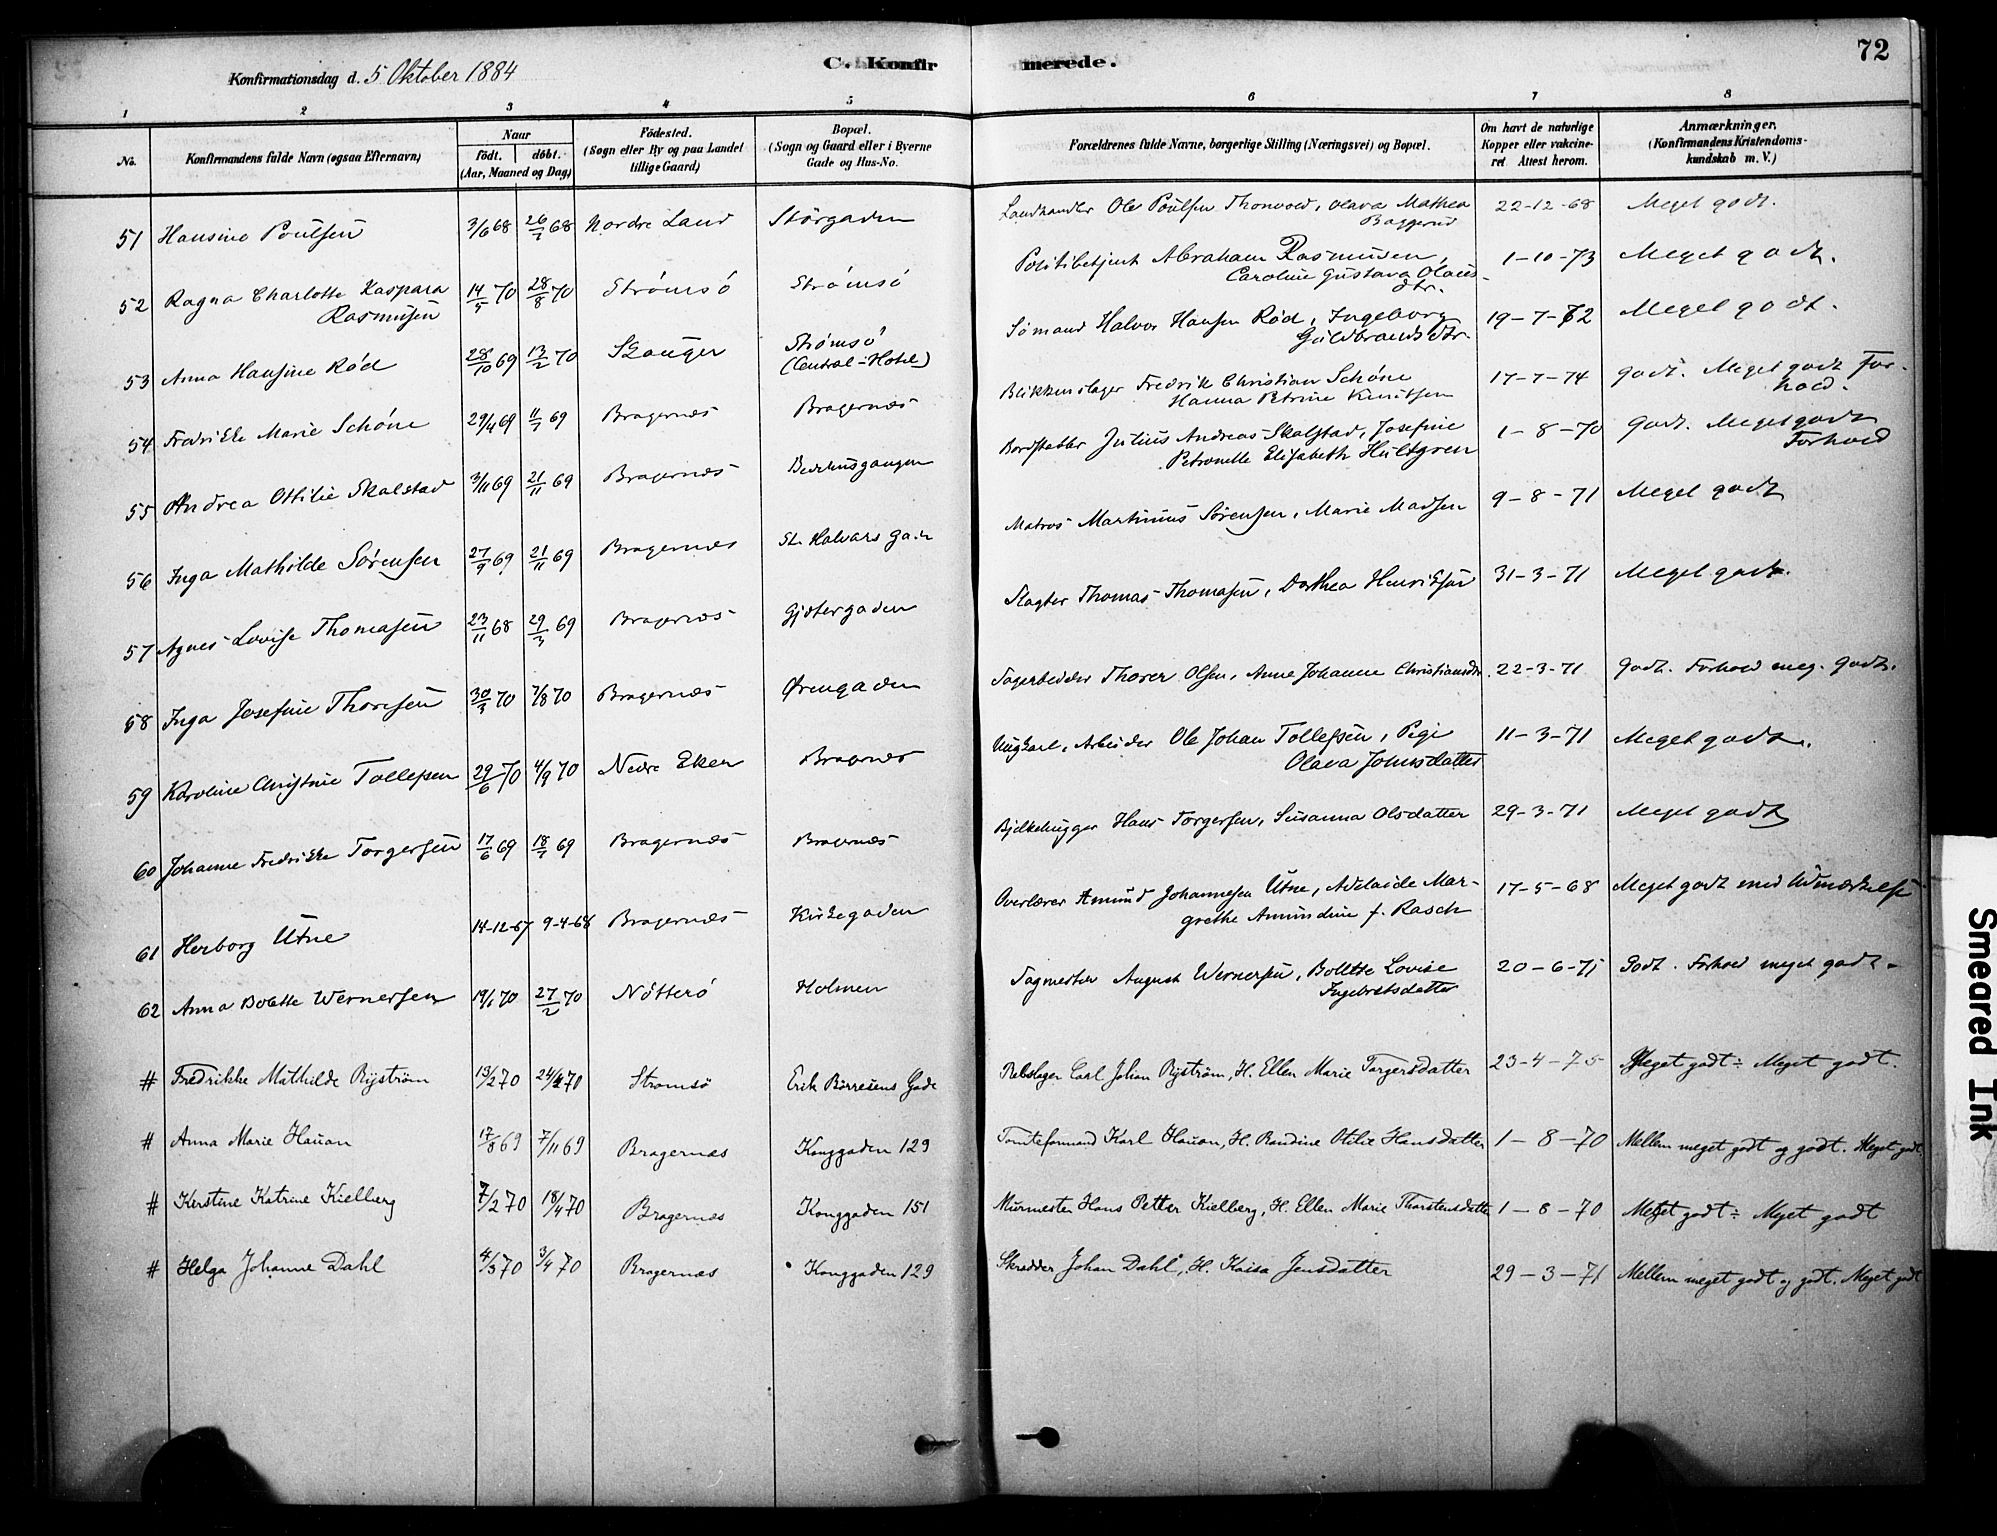 72
Konfirmationsdag d. 5 Oktober 1884
C. Konfirmerede.
1 2 3 4 5 6 7 8
No. Konfirmandens fulde Navn (ogsaa Efternavn) Naar født. døbt. (Aar, Maaned og Dag) Fødested. (Sogn eller By og paa Landet tillige Gaard) Bopæl. (Sogn og Gaard eller i Byerne Gade og Hus-No. Forældrenes fulde Navne, borgerlige Stilling (Næringsvei) og Bopæl. Om havt de naturlige Kopper eller vakcineret Attest herom. Anmærkninger. (Konfirmandens Kristendomskundskab m. V.)
51 Hansine Poulsen 3/6 68 26/7 68 Nordre Land Storgaden Landhandler Ole Poulsen Thonvold, Olava Mathea Baggerud 22-12-68 Meget godt.
52 Ragna Charlotte Kaspara Rasmusen 14/5 70 28/8 70 Strømsö Strømsö Politibetjent Abraham Rasmusen, Caroline Gustava Olausdtr. 1-10-73 Meget godt.
53 Anna Hansine Rød 28/10 69 13/2 70 Skouger Strømsö (Central-Hotel) Sømand Halvor Hansen Rød, Ingeborg Guldbrandsdtr. 19-7-72 Meget godt.
54 Fredrikke Marie Schöne 29/4 69 11/7 69 Bragernæs Bragernæs Blikkenslager Fredrik Christian Schöne Hanna Petrine Knutsen 17-7-74 godt. Meget godt Forhold.
55 Andrea Ottilie Skalstad 3/11 69 21/11 69 Bragernæs Bedehusgangen Bordstabler Julius Andreas Skalstad, Josefine Petronelle Elisabeth Hultgren 1-8-70 Godt. Meget godt Forhold
56 Inga Mathilde Sörensen 27/9 69 21/11 69 Bragernæs St. Halvars gade Matros Martinius Sörensen, Marie Madsen 9-8-71 Meget godt
57 Agnes Lovise Thomasen 23/11 68 29/3 69 Bragernæs Gjetergaden Slagter Thomas Thomasen, Dorthea Henriksen 31-3-71 Meget godt.
58 Inga Josefine Thoresen 30/3 70 7/8 70 Bragernæs Ørengaden Sagarbeider Thorer Olsen, Anne Johanne Christiansdtr. 22-3-71 Godt. Forhold meg. godt.
59 Karoline Christine Tollefsen 29/6 70 4/9 70 Nedre Eker Bragernes Ungkarl, Arbeider Ole Johan Tollefsen, Pige Olava Johnsdatter 11-3-71 Meget godt.
60 Johanne Fredrikke Torgersen 17/6 69 18/7 69 Bragernæs Bragernæs Bjelkehugger Hans Torgersen, Susanna Olsdatter 29-3-71 Meget godt
61 Herborg Utne 14-12-67 9-4-68 Bragernæs Kirkegaden Overlærer Amund Johannesen Utne, Adelaide Margrethe Amundine f. Rasch 17-5-68 Meget godt med Udmærkelse
62 Anna Bolette Wernersen 19/1 70 27/2 70 Nötterö Holmen Sagmester August Wernersen, Bolette Lovise Ingebretsdatter 20-6-71 Godt. Forhold meget godt.
# Fredrikke Mathilde Ryström 13/2 70 24/4 70 Strømsø Erik Börresens Gade Rebslager Carl Johan Ryström, H. Ellen Marie Torgersdatter 23-4-75 Meget godt: Meget godt.
# Anna Marie Hauan 17/8 69 7/11 69 Bragernæs Konggaden 129 Tomteformand Karl Hauan, H. Randine Otilie Hansdatter 1-8-70 Mellem meget godt og godt. Meget godt.
# Kerstine Katrine Kielberg 7/2 70 18/4 70 Bragernæs Konggaden 151 Murmester Hans Petter Kielberg, H. Ellen Marie Thorstensdatter 1-8-70 Meget godt: Meget godt
# Helga Johanne Dahl 4/3 70 3/4 70 Bragernæs Konggaden 129 Skrædder Johan Dahl, H. Kaisa Jensdatter 29-3-71 Mellem meget godt og godt. Meget godt
Smeared Ink